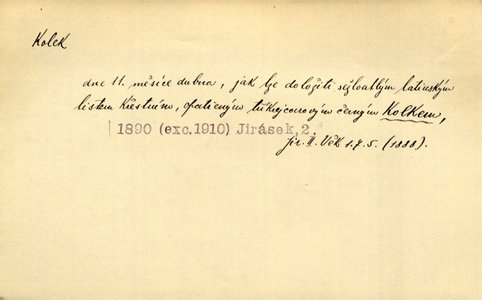 Kolek
dne 11. měsíce dubna, jak lze doložiti sežloutlým latinským
listem křestním, opatřeným tříkrejcarovým černým Kolkem,
1890 (exc.1910) Jirásek,2.
Jir. II. Věk 1. 5. (1888).